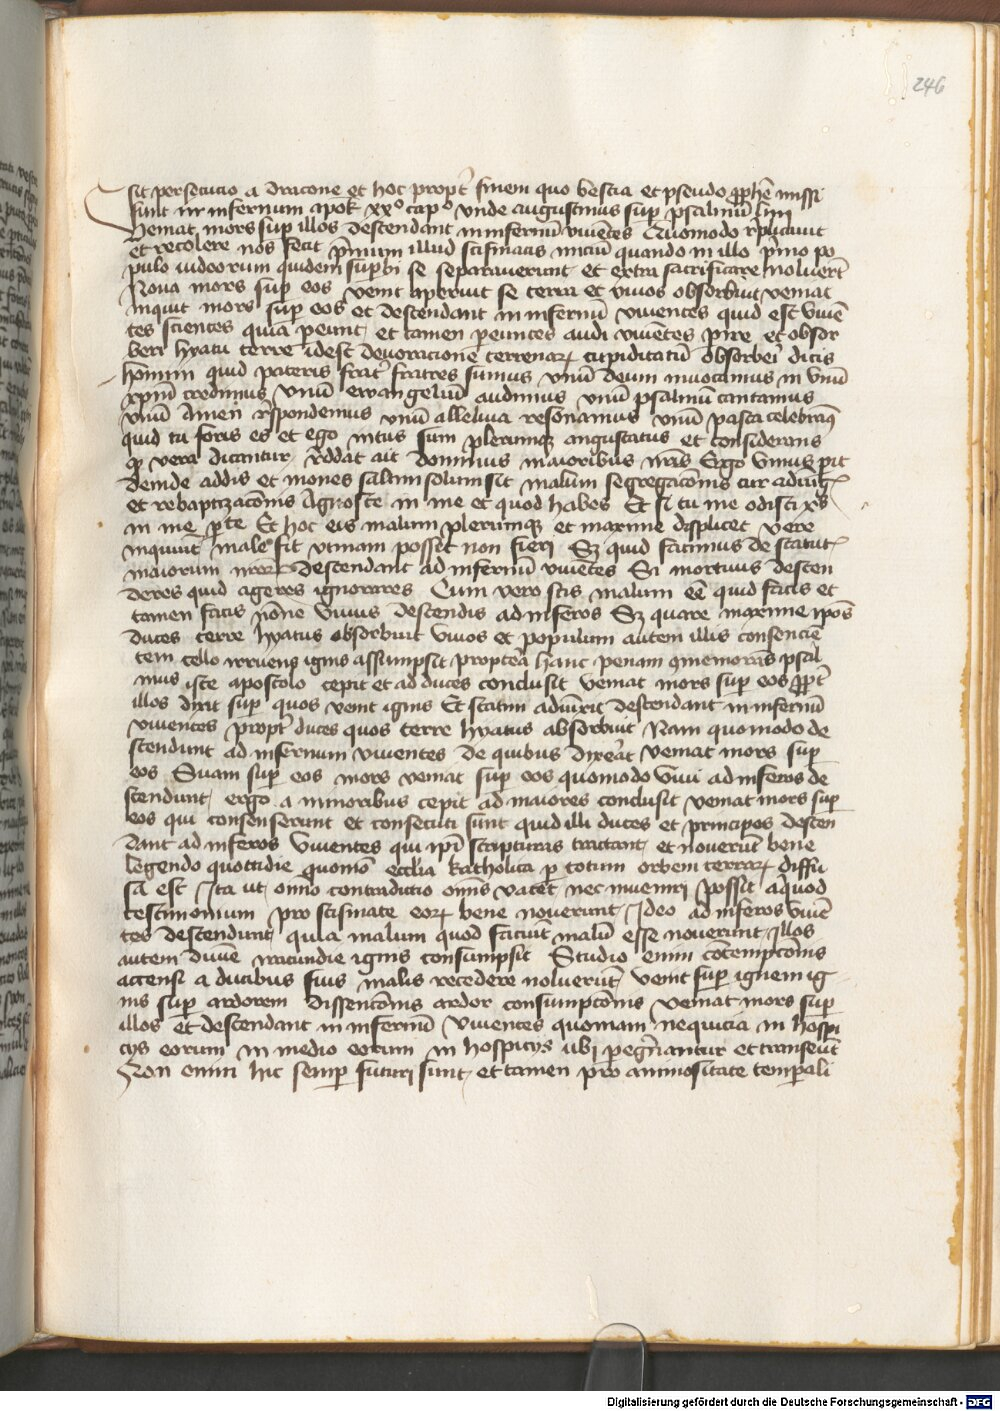 246
sit persecucio a dracone et hoc propt̄ finem quo bestia et pseudo ꝓphē missi
sunt in infernum apok̄ xxº capº vnde augustinus sup̄ psalmū liiii
Veniat mors sup illos descendant in infernū viuētes Quomodo r̄plicauit
et recolere nos fecit p̄mum illud scismatis iniciū quando in illo p̄mo po
pulo iudeorum quidem sup̄bi se separauerunt et extra sacrificare noluer̄t
Noua mors sup̄ eos venit aperuit se terra et viuos obsorbuit veniat
inquit mors sup̄ eos et descendant in infernū viuentes quid est viuē
tes scientes quia p̄eunt et tamen p̄euntes audi viuētes p̄ire et obsor
beri hyatu terre idest deuoracione terrenaꝝ cupiditatū obsorberi dicis
homini quid pateris frat̄ fratres sumus vnū deum inuocamus in vnū
xp̄m credimus vnū ewangeliū audimus vnū psalmū cantamus
vnū Amen r̄spondemus vnū alleluia resonamus vnū pasca celebramꝰ
quid tu foris es et ego intus sum plerumqꝫ angustatus et considerans
qꝫ vera dicantur r̄ddat ait dominus maioribus nr̄is Ergo viuus p̄it
deinde addis et mones saltim solum sit malum segregacōnis cur adiūḡ
et rebaptizacōnis Agnosce in me et quod habes Et si tu me odisti xp̄s
in me p̄te Et hoc eis malum plerumqꝫ et maxime displicet vere
inquiūt male fit vtinam posset non fieri Sꝫ quid facimus de statut̄
maiorum nr̄oꝝ descendant ad infernū viuētes Si mortuus descen
deres quid ageres ignorares Cum vero scis malum eē quid facis et
tamen facis nōne viuus descendis ad inferos Sꝫ quare maxime ip̄os
duces terre hyatus obsorbuit viuos et populum autem illis consencie
tem cello irruens ignis assumpsit propterea hanc penam ꝯmemorās psal
mus iste apostolo cepit et ad duces conclusit veniat mors sup̄ eos ꝓpt̄
illos dixit sup̄ quos venit ignis Et statim adiūxit descendant in infernū
viuentes propt̄ duces quos terre hyatus absorbuit Nam quomodo de
scendunt ad infernum viuentes de quibus dixer̄at veniat mors sup̄
eos Suam sup̄ eos mors veniat sup̄ eos quomodo viui ad inferos de
scendunt ergo a minoribus cepit ad maiores conclusit veniat mors sup̄
eos qui consenserunt et consecuti sunt quid illi duces et principes descen
dant ad inferos viuentes qui ip̄i scripturas tractant et nouerūt bene
legendo quottidie quomō ecclīa katholica p̄ totum orbem terraꝝ diffu
sa est Ita ut omnō contradictio om̄is vacet nec inueniri possit aliquod
testimonium pro scismate eoꝝ bene nouerunt Ideo ad inferos viuē
tes descendunt quia malum quod faciūt malū esse nouerunt Illos
autem diuine iracundie ignis consumpsit Studio enim cōtempcōnis
accensi a ducibus suis malis recedere noluerūt venit sup̄ ignem ig
nis sup̄ ardorem dissencōnis ardor consumpcōnis veniat mors sup̄
illos et descendant in infernū viuentes quoniam nequicia in hospi
cijs eorum in medio eorum in hospicijs ubi p̄egr̄inantur et transeūt
Non enim hic semp̄ futuri sunt et tamen pro animositate temp̄ali
Digitalisierung gefördert durch die Deutsche Forschungsgemeinschaft - DFG